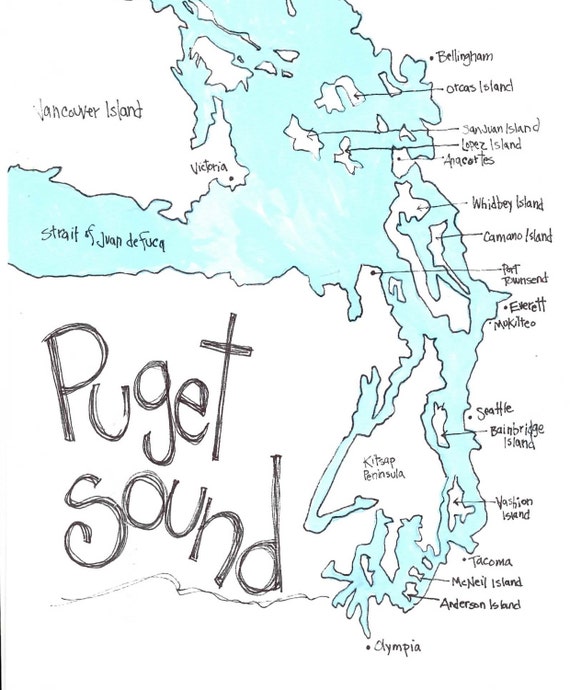 Bellingham
Orcas Island
Vancouver Island
San Juan Island
Lopez Island
Anacortes
Victoria
Whidbey Island
Camano Island
Strait of Juan de Fuca
Port
Townsend
Everett
Mukilteo
Puget
Sound
Seattle
Bainbridge
Island
Kitsap
Peninsula
Vashion
Island
Tacoma
McNeil Island
Anderson Island
Olympia